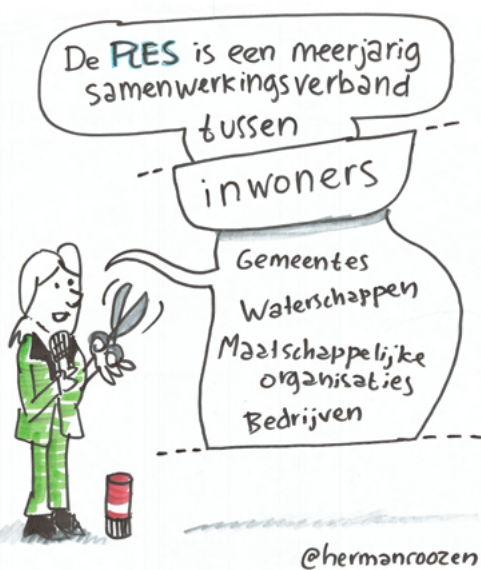 De RES is een meerjarig
samenwerkingsverband
tussen
inwoners
Gemeentes
Waterschappen
Maatschappelijke
organisaties
Bedrijven
@hermanroozen